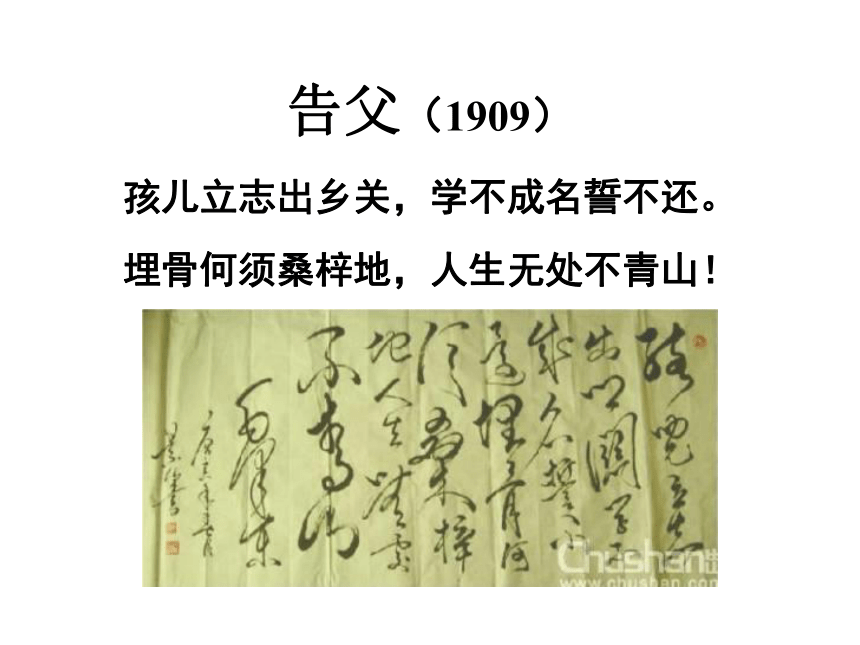 告父（1909）
孩儿立志出乡关，学不成名誓不还。
埋骨何须桑梓地，人生无处不青山！
孩兒立志
出鄉關學不
成名誓不
還埋骨何
須桑梓
地人生無處
不青山
毛澤東
Chushan
www.chushan.com